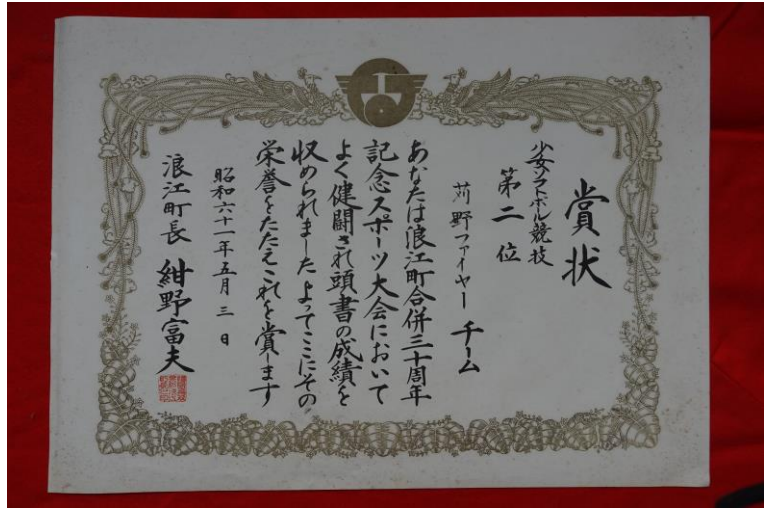 賞状
少女ソフトボール競技
第二位
苅野ファイヤー チーム
あなたは浪江町合併三十周年
記念スポーツ大会において
よく健闘され頭書の成績を
収められました よってここにその
栄誉をたたえこれを賞します
昭和六十一年五月三日
浪江町長 紺野富夫